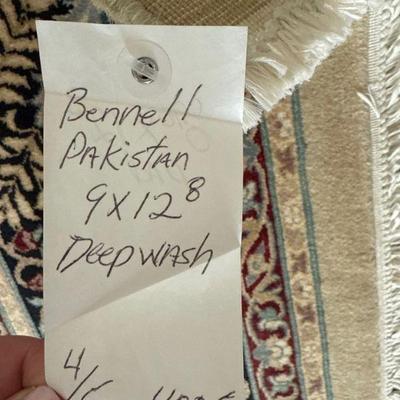 Bennell
Pakistan
9 X 12 8
Deepwash
4/